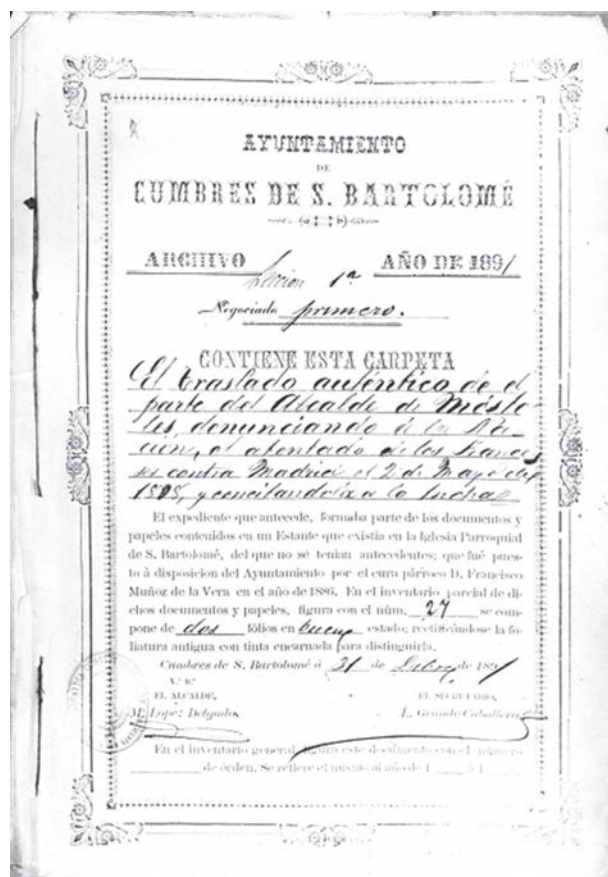 AYUNTAMIENTO
DE
CUMBRES DE S. BARTOLOMÉ
ARCHIVO
AÑO DE 1891
Sección 1ª
Negociado primero.
CONTIENE ESTA CARPETA
El traslado auténtico de el
parte del Alcalde de Mósto-
les, denunciando á la Na-
ción, el atentado de los france-
ses contra Madrid el 2 de Mayo de
1808, y concitandola a la lucha
El expediente que antecede, formaba parte de los documentos y
papeles contenidos en un Estante que existía en la Iglesia Parroquial
de S. Bartolomé, del que no sé tenian antecedentes; que fué pues-
to á disposicion del Ayuntamiento por el cura párroco D. Francisco
Muñoz de la Vera en el año de 1886. En el inventario parcial de di-
chos documentos y papeles, figura con el núm. 27 se com-
pone de dos fólios en buen estado; rectificándose la fo-
liatura antigua con tinta encarnada para distinguirla.
Cumbres de S. Bartolomé á 31 de Dibre. de 1891
V.º B.º
EL ALCALDE,
EL SECRETARIO,
M. Lopez Delgado
L. Grande Caballero
En el inventario general, figura este documento con el número
de órden. Se refiere el mismo al año de 1